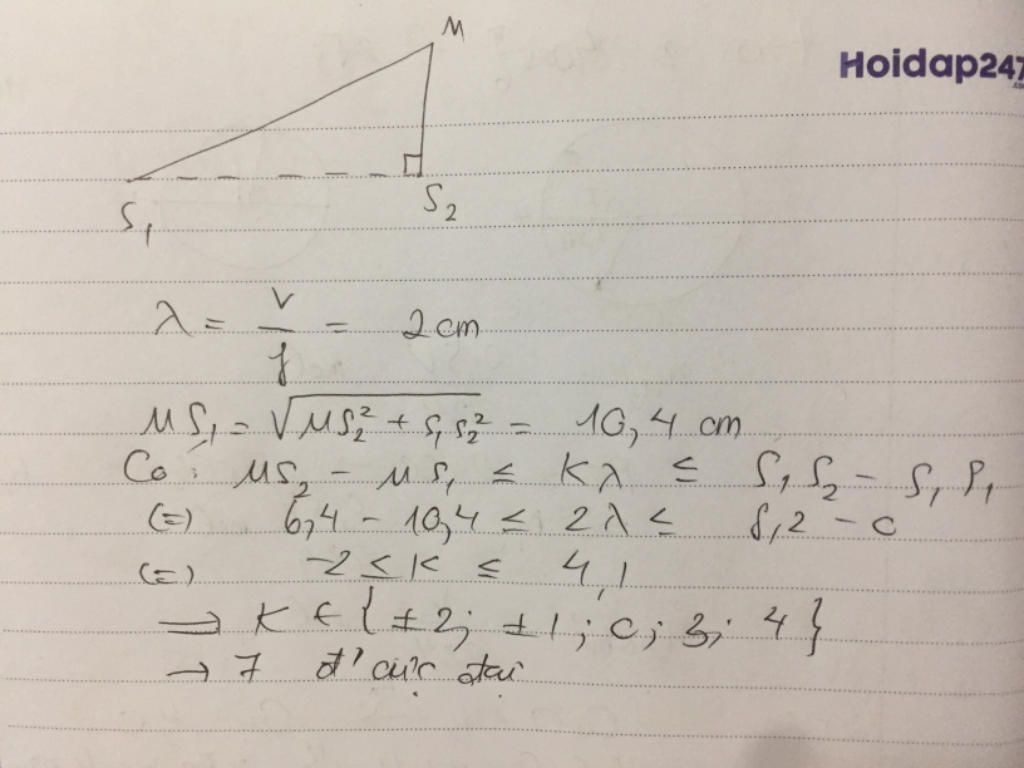 M
Hoidap247
.com
S₁
S₂
λ = v/f = 2cm
MS₁ = √(MS₂² + S₁S₂²) = 10,4 cm
Có: MS₂ - MS₁ ≤ Kλ ≤ S₁S₂ - S₁S₁
(=) 6,4 - 10,4 ≤ 2λ ≤ 8,2 - 0
(=) -2 ≤ K ≤ 4,1
⇒ K ∈ {±2; ±1; 0; 3; 4}
→ 7 đ' cực đại